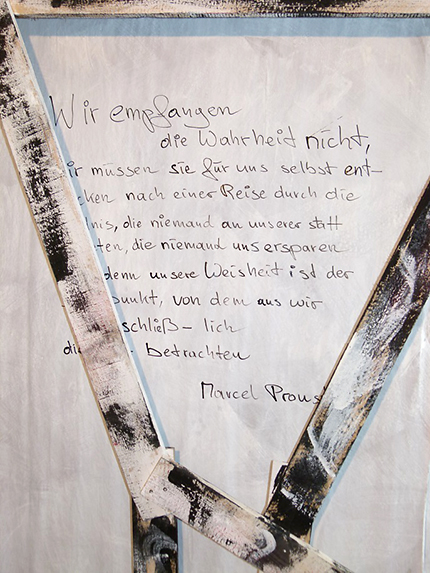 Wir empfangen
die Wahrheit nicht,
ir müssen sie für uns selbst ent-
cken nach einer Reise durch die
nis, die niemand an unserer statt
ten, die niemand uns ersparen
denn unsere Weisheit ist der
punkt, von dem aus wir
schließ-lich
di betrachten
Marcel Prous